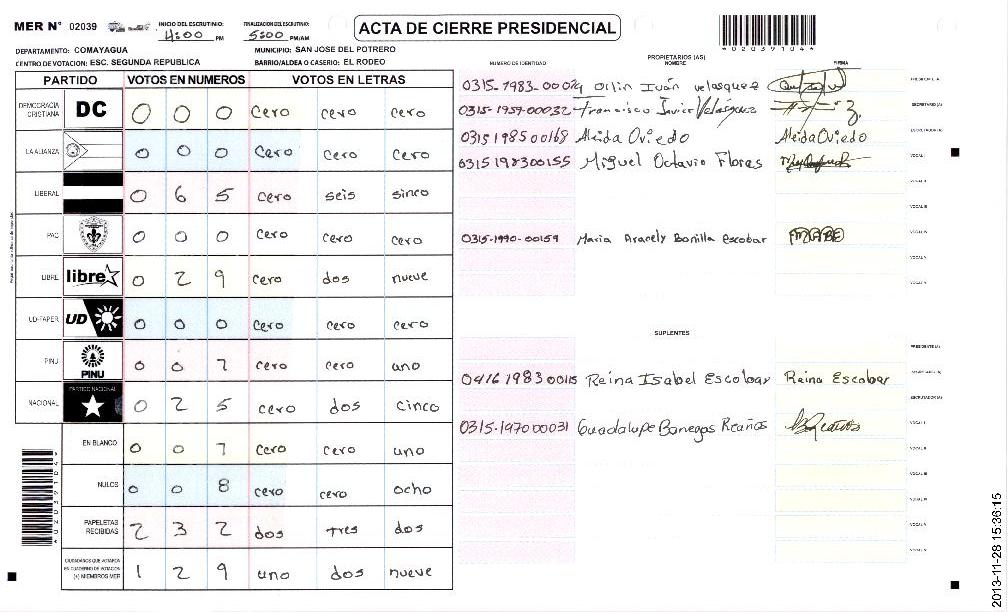 MER N° 02039
INICIO DEL ESCRUTINIO: 4:00 PM
FINALIZACION DEL ESCRUTINIO: 5:00 PM/AM
ACTA DE CIERRE PRESIDENCIAL
*02039104*
DEPARTAMENTO: COMAYAGUA
MUNICIPIO: SAN JOSE DEL POTRERO
CENTRO DE VOTACION: ESC. SEGUNDA REPUBLICA
BARRIO/ALDEA O CASERIO: EL RODEO
PARTIDO VOTOS EN NUMEROS VOTOS EN LETRAS
DEMOCRACIA CRISTIANA DC 0 0 0 cero cero cero
LA ALIANZA 0 0 0 cero cero cero
LIBERAL 0 6 5 cero seis sinco
PAC 0 0 0 cero cero cero
LIBRE libre 0 2 9 cero dos nueve
UD-FAPER UD 0 0 0 cero cero cero
PINU PINU 0 0 1 cero cero uno
NACIONAL PARTIDO NACIONAL 0 2 5 cero dos cinco
EN BLANCO 0 0 1 cero cero uno
NULOS 0 0 8 cero cero ocho
PAPELETAS RECIBIDAS 2 3 2 dos tres dos
CIUDADANOS QUE VOTARON EN CUADERNO DE VOTACION (+) MIEMBROS MER 1 2 9 uno dos nueve
NUMERO DE IDENTIDAD
PROPIETARIOS (AS)
NOMBRE
FIRMA
Orlin Iván velasquez
PRESIDENTE (A)
0315-1957-00032 Francisco Javier Velásquez
SECRETARIO (A)
0315198500168 Aleida Oviedo Aleida Oviedo
ESCRUTADOR (A)
0315198300155 Miguel Octavio Flores
VOCAL I
VOCAL II
VOCAL III
0315-1990-00159 Maria Aracely Bonilla Escobar MABE
VOCAL IV
VOCAL V
VOCAL VI
SUPLENTES
PRESIDENTE (A)
0416198300115 Reina Isabel Escobar Reina Escobar
SECRETARIO (A)
ESCRUTADOR (A)
0315-197000031 Guadalupe Banegas Reaños
VOCAL I
VOCAL II
VOCAL III
VOCAL IV
VOCAL V
VOCAL VI
2013-11-28 15:36:15